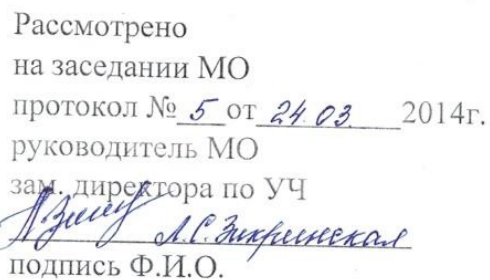 Рассмотрено
на заседании МО
протокол № 5 от 24.03 2014г.
руководитель МО
зам. директора по УЧ
Л.С.
подпись Ф.И.О.